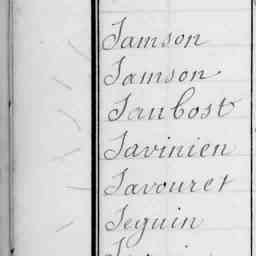 Samson
Samson
Saubost
Savinien
Savouret
Seguin